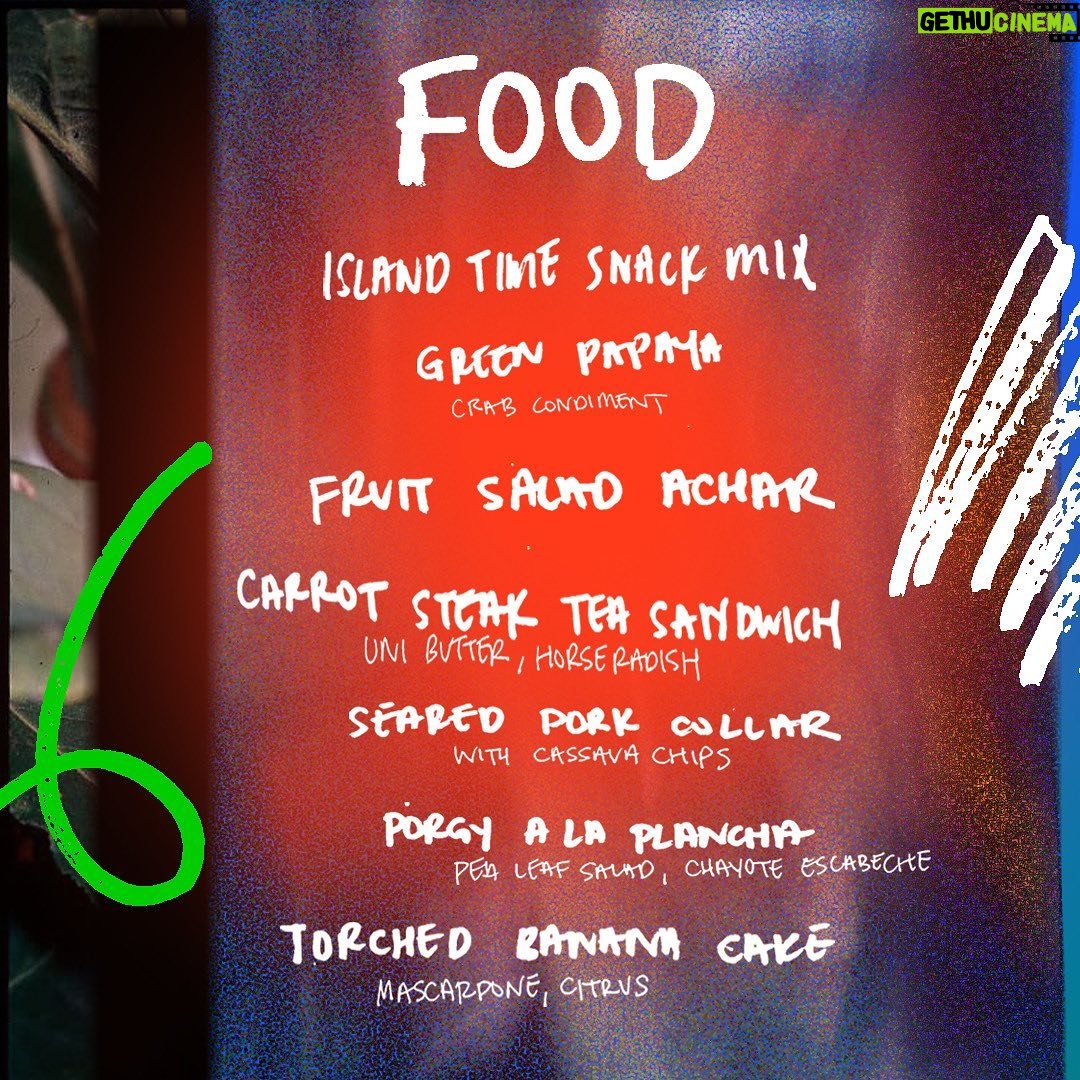 GETHUCINEMA
FOOD
ISLAND TIME SNACK MIX
GREEN PAPAYA
CRAB CONDIMENT
FRUIT SALAD ACHAR
CARROT STEAK TEA SANDWICH
UNI BUTTER, HORSERADISH
SEARED PORK COLLAR
WITH CASSAVA CHIPS
PORGY A LA PLANCHA
PEA LEAF SALAD, CHAYOTE ESCABECHE
TORCHED BANANA CAKE
MASCARPONE, CITRUS